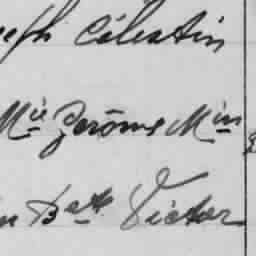 eph Célestin
Mie Jérôme Min
n Bte Victor